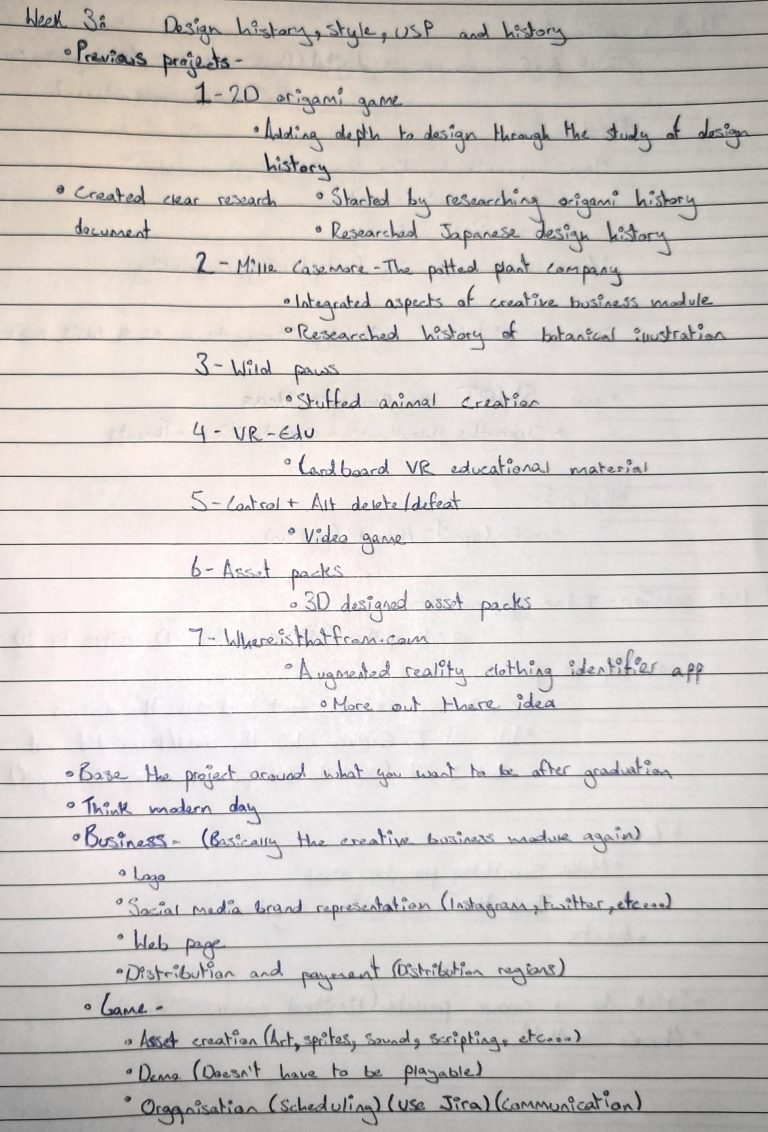 Week 3: Design history, style, USP and history
• Previous projects-
1-2D origami game
• Adding depth to design through the study of design
history
• Created clear research • Started by researching origami history
document • Researched Japanese design history
2 - Mille Casemore - The potted plant company
• Integrated aspects of creative business module
• Researched history of botanical illustration
3 - Wild paws
• Stuffed animal creation
4 - VR-Edu
• Cardboard VR educational material
5 - Control + Alt delete/defeat
• Video game
6 - Asset packs
• 3D designed asset packs
7 - Whereisthatfrom.com
• Augmented reality clothing identifier app
• More out there idea
• Base the project around what you want to be after graduation
• Think modern day
• Business - (Basically the creative business module again)
• Logo
• Social media brand representation (Instagram, twitter, etc....)
• Web page
• Distribution and payment (Distribution regions)
• Game -
• Asset creation (Art, sprites, sound, scripting, etc....)
• Demo (Doesn't have to be playable)
• Orggnisation (Scheduling) (Use Jira) (Communication)